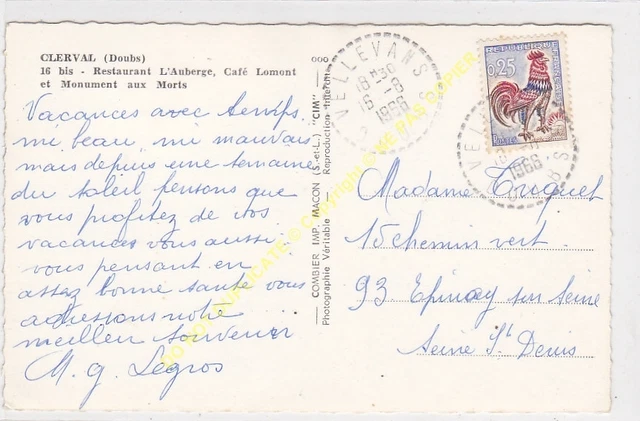 CLERVAL (Doubs)
16 bis - Restaurant L'Auberge, Café Lomont
et Monument aux Morts
Vacances avec temps
mi beau, mi mauvais
mais depuis une semaine
du soleil pensons que
vous profitez de vos
vacances vous aussi
vous pensant en
assez bonne santé vous
adressons notre
meilleur souvenir
M. g. Legros
COMBIER IMP. MACON (S.-et-L.) "CIM"
Photographie Véritable - Reproduction Interdite
VELLEVANS
18 H 30
16 - 8
1966
DOUBS
REPUBLIQUE FRANÇAISE
0,25
Madame Truquet
15 chemin vert.
93 Epinay sur Seine
Seine St Denis